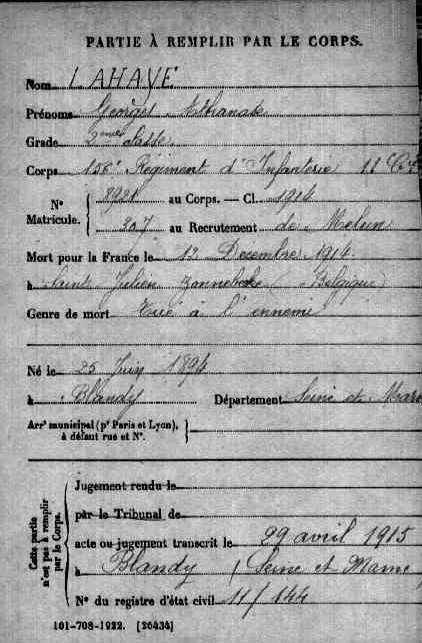 PARTIE À REMPLIR PAR LE CORPS.
Nom LAHAYE
Prénoms Georges Athanase
Grade 2ème classe
Corps 156e Régiment d'Infanterie 11 Cie
N° Matricule. { 8921 au Corps. — Cl. 1914
307 au Recrutement de Melun
Mort pour la France le 12 Decembre 1914
à Saint Julien Zonnebeke (Belgique)
Genre de mort Tué à l'ennemi
Né le 25 Juin 1894
à Blandy Département Seine et Marn
Arrt municipal (pr Paris et Lyon), à défaut rue et N°. {
Cette partie n'est pas à remplir par le Corps.
Jugement rendu le
par le Tribunal de
acte ou jugement transcrit le 29 avril 1915
à Blandy (Seine et Marne
N° du registre d'état civil 11/144
101-708-1922. [26434]